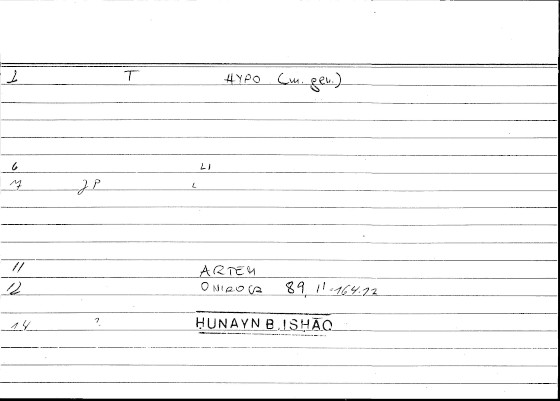 1 T HYPO (m. gen.)
6 LI
7 JP L
11 ARTEM
12 ONIROCR 89, 11-164.12
14 ? HUNAYN B. ISHĀQ